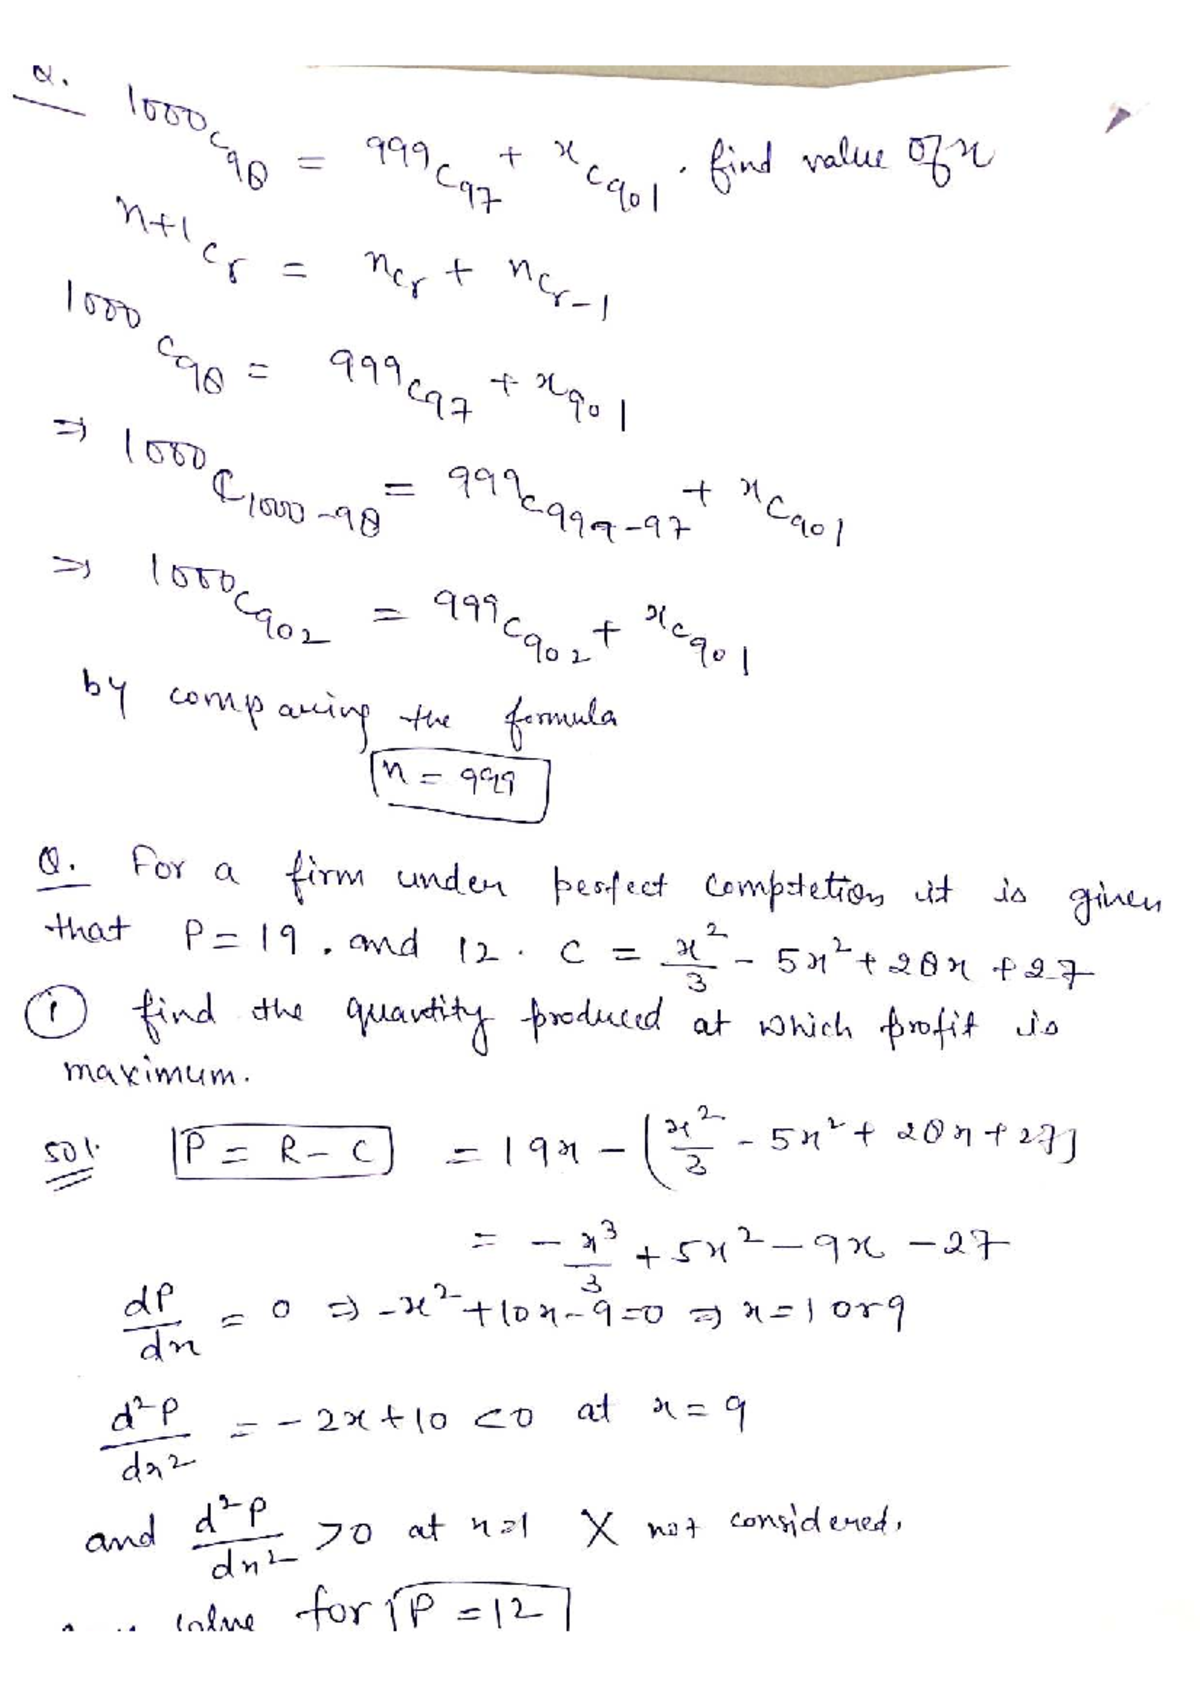 Q. 1000C98 = 999C97 + xC901. find value of x
n+1Cr = nCr + nCr-1
1000C98 = 999C97 + x901
⇒ 1000C1000-98 = 999C999-97 + xC901
⇒ 1000C902 = 999C902 + xC901
by comparing the formula
x = 999
Q. For a firm under perfect comptetion it is given
that P = 19. and 12. C = x²/3 - 5x² + 28x + 27
(i) find the quantity produced at which profit is
maximum.
sol. P = R - C = 19x - (x²/3 - 5x² + 28x + 27]
= - x³/3 + 5x² - 9x - 27
dP/dx = 0 ⇒ -x² + 10x - 9 = 0 ⇒ x = 1 or 9
d²P/dx² = -2x + 10 < 0 at x = 9
and d²P/dx² > 0 at x = 1 X not considered.
value for P = 12